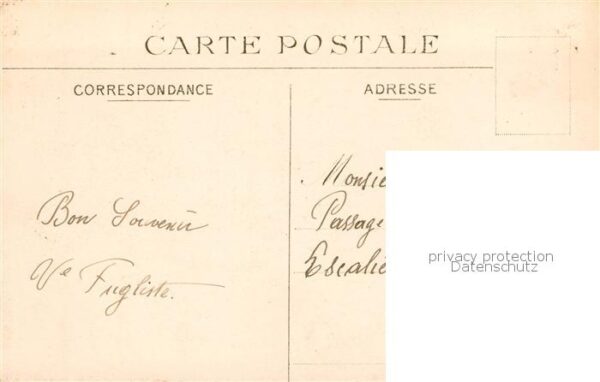 CARTE POSTALE
CORRESPONDANCE
ADRESSE
Bon Souvenir
Ve Fugliste.
Monsie
Passage
Escalie
privacy protection
Datenschutz